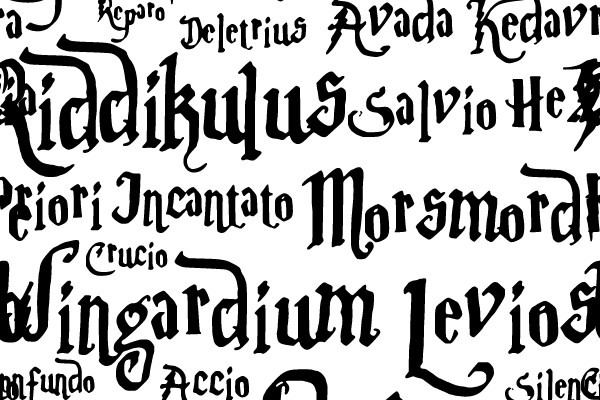 Reparo
Deletrius Avada Kedavr
Riddikulus Salvio He
Priori Incantato Morsmord
Crucio
Wingardium Levios
onfundo Accio Silenc